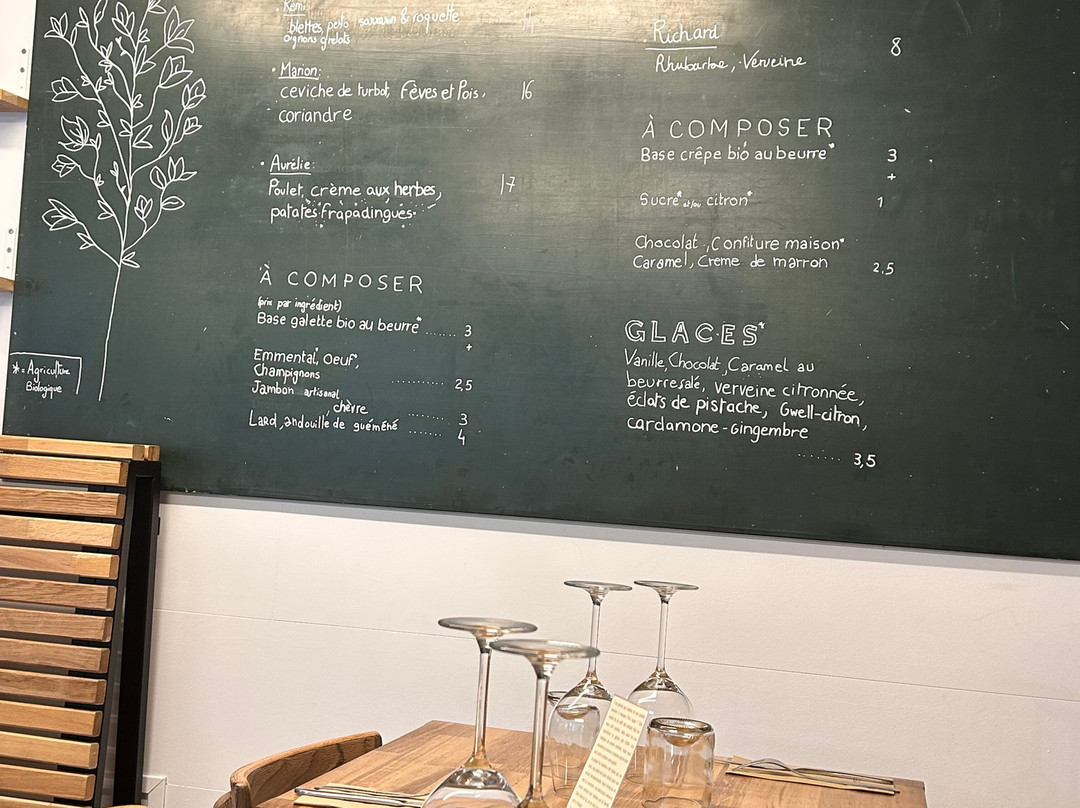 Rémi
blettes, pesto sarrasin & roquette
oignons grelots
• Marion:
ceviche de turbot, Fèves et Pois, 16
coriandre
• Aurélie:
Poulet, crème aux herbes, 17
patates frapadingues
À COMPOSER
(prix par ingrédient)
Base galette bio au beurre* ...... 3
+
Emmental*, oeuf*,
Champignons .......... 2,5
Jambon artisanal
, chèvre ....... 3
Lard, andouille de guéméné ...... 4
*= Agriculture
Biologique
Richard 8
Rhubarbe, Verveine
À COMPOSER
Base crêpe bio au beurre* 3
+
Sucre* et/ou citron* 1
Chocolat, Confiture maison*
Caramel, Crème de marron 2,5
GLACES*
Vanille, Chocolat, Caramel au
beurre salé, verveine citronnée,
éclats de pistache, Gwell-citron,
cardamone-Gingembre
....... 3,5